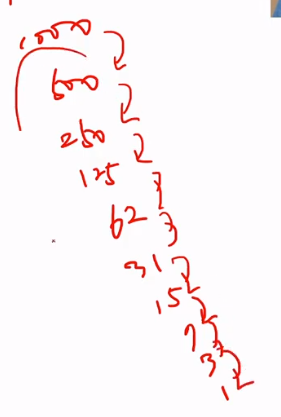 1000
500
250
125
62
31
15
7
3
1